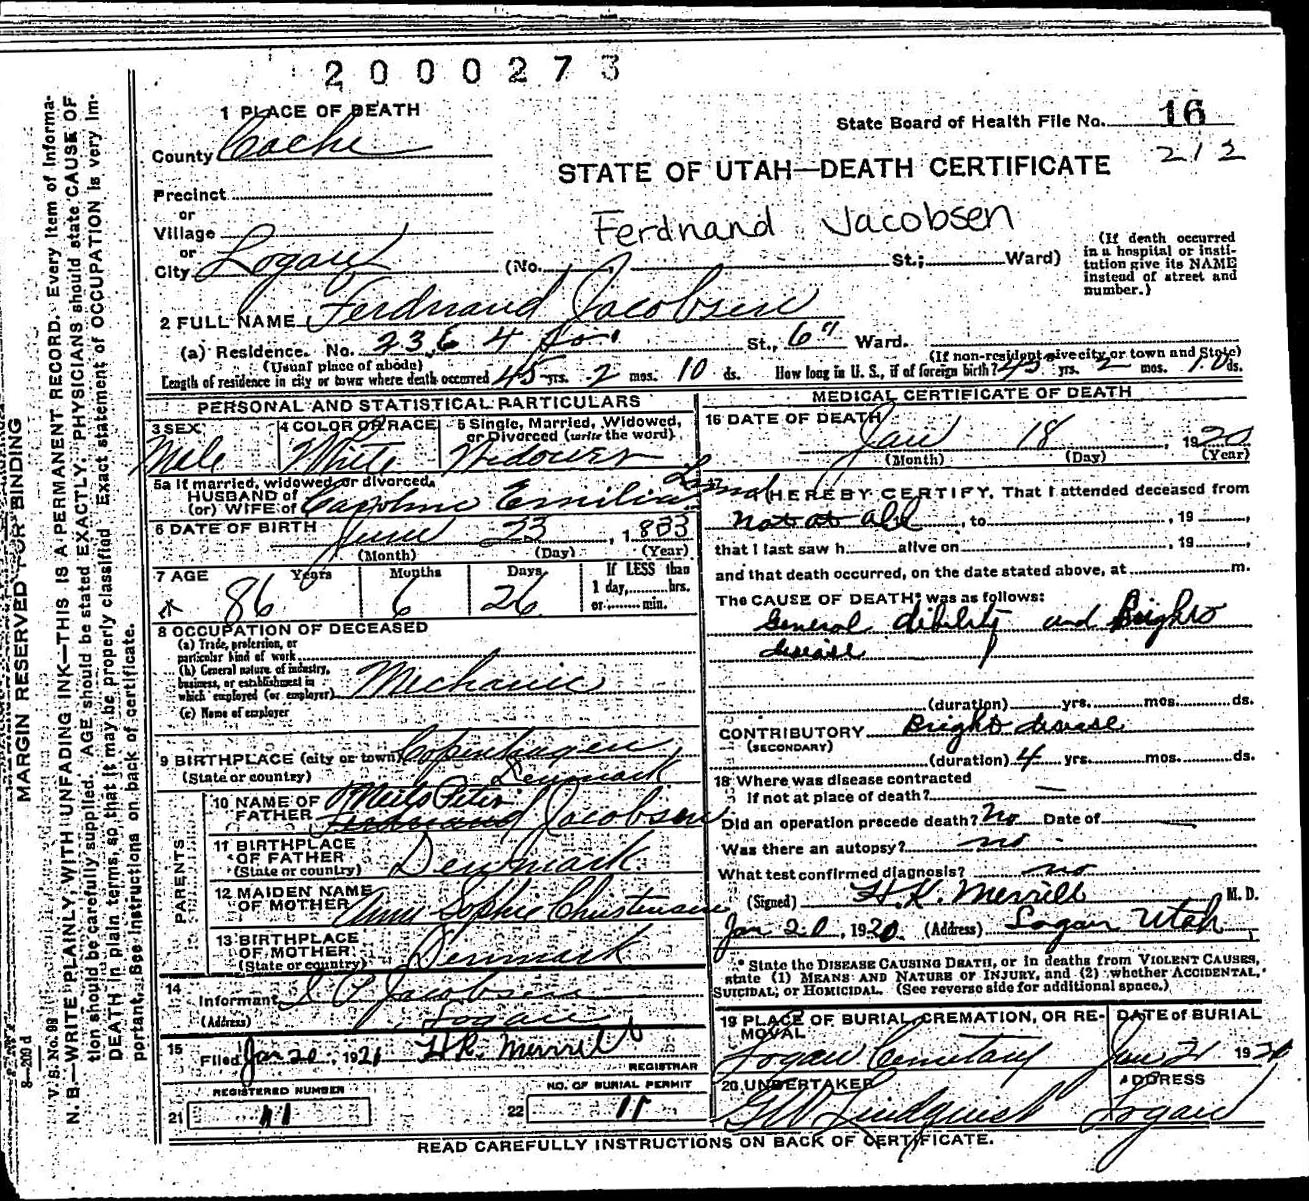 2000273
1 PLACE OF DEATH
County Cache
State Board of Health File No. 16
212
STATE OF UTAH—DEATH CERTIFICATE
Precinct
or
Village
or
City Logan
Ferdnand Jacobsen
(No. , St.; Ward)
(If death occurred
in a hospital or insti-
tution give its NAME
instead of street and
number.)
2 FULL NAME Ferdnand Jacobsen
(a) Residence. No. 236 4 So. St., 6" Ward.
(Usual place of abode)
(If non-resident give city or town and State)
Length of residence in city or town where death occurred 45 yrs. 2 mos. 10 ds. How long in U. S., if of foreign birth? 45 yrs. 2 mos. 10 ds.
PERSONAL AND STATISTICAL PARTICULARS
3 SEX
Male
4 COLOR OR RACE
White
5 Single, Married, Widowed,
or Divorced (write the word)
Widower
5a If married, widowed, or divorced,
HUSBAND of
(or) WIFE of Caroline Emilie
6 DATE OF BIRTH
June 23, 1833
(Month) (Day) (Year)
7 AGE
Years Months Days
86 6 26
If LESS than
1 day, hrs.
or min.
8 OCCUPATION OF DECEASED
(a) Trade, profession, or
particular kind of work
(b) General nature of industry,
business, or establishment in
which employed (or employer) Mechanic
(c) Name of employer
9 BIRTHPLACE (city or town) Copenhagen
(State or country) Denmark
PARENTS
10 NAME OF
FATHER Peter Jacobsen
11 BIRTHPLACE
OF FATHER
(State or country) Denmark
12 MAIDEN NAME
OF MOTHER Ann Sophie Christensen
13 BIRTHPLACE
OF MOTHER
(State or country) Denmark
14
Informant S P Jacobsen
(Address) Logan
15
Filed Jan 20, 1921 H.K. Merrill
REGISTRAR
REGISTERED NUMBER
21 11
NO. OF BURIAL PERMIT
22 11
MEDICAL CERTIFICATE OF DEATH
16 DATE OF DEATH
Jan 18, 1920
(Month) (Day) (Year)
I HEREBY CERTIFY, That I attended deceased from
not at all, to , 19 ,
that I last saw h alive on , 19 ,
and that death occurred, on the date stated above, at m.
The CAUSE OF DEATH* was as follows:
General dibility and Brights
disease
(duration) yrs. mos. ds.
CONTRIBUTORY Brights disease
(SECONDARY)
(duration) 4 yrs. mos. ds.
18 Where was disease contracted
If not at place of death?
Did an operation precede death? No Date of
Was there an autopsy? no
What test confirmed diagnosis? no
(Signed) H.K. Merrill M. D.
Jan 20, 1920 (Address) Logan Utah
* State the DISEASE CAUSING DEATH, or in deaths from VIOLENT CAUSES,
state (1) MEANS AND NATURE OF INJURY, and (2) whether ACCIDENTAL,
SUICIDAL, or HOMICIDAL. (See reverse side for additional space.)
19 PLACE OF BURIAL, CREMATION, OR RE-
MOVAL
Logan Cemetary
DATE of BURIAL
Jan 21 1920
20 UNDERTAKER
GW Lindquist
ADDRESS
Logan
READ CAREFULLY INSTRUCTIONS ON BACK OF CERTIFICATE.
MARGIN RESERVED FOR BINDING
V. S. No. 99
N. B.—WRITE PLAINLY, WITH UNFADING INK—THIS IS A PERMANENT RECORD. Every Item of Informa-
tion should be carefully supplied. AGE should be stated EXACTLY. PHYSICIANS should state CAUSE OF
DEATH in plain terms, so that it may be properly classified. Exact statement of OCCUPATION is very im-
portant. See instructions on back of certificate.